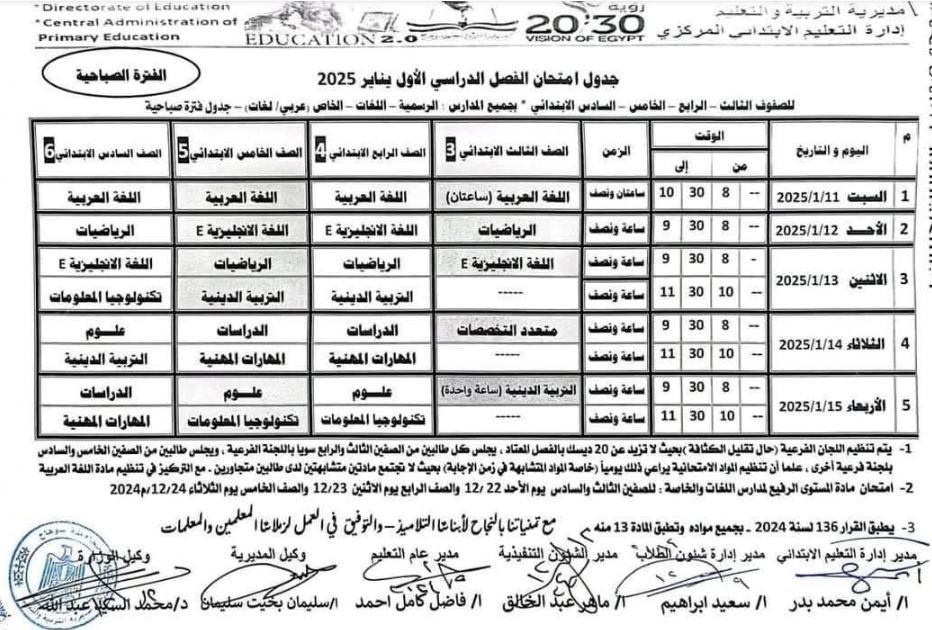 * Directorate of Education
* Central Administration of
Primary Education
EDUCATION 2.0
رؤية
20:30
VISION OF EGYPT
مديرية التربية والتعليم
إدارة التعليم الابتدائى المركزي
الفترة الصباحية
جدول امتحان الفصل الدراسي الأول يناير 2025
للصفوف الثالث – الرابع – الخامس – السادس الابتدائي * بجميع المدارس : الرسمية – اللغات – الخاص (عربي/ لغات) – جدول فترة صباحية
م اليوم و التاريخ الوقت من إلى الزمن الصف الثالث الابتدائي 3 الصف الرابع الابتدائي 4 الصف الخامس الابتدائي 5 الصف السادس الابتدائي 6
1 السبت 2025/1/11 -- 8 30 10 ساعتان ونصف اللغة العربية (ساعتان) اللغة العربية اللغة العربية اللغة العربية
2 الأحد 2025/1/12 -- 8 30 9 ساعة ونصف الرياضيات اللغة الانجليزية E اللغة الانجليزية E الرياضيات
3 الاثنين 2025/1/13 - 8 30 9 ساعة ونصف اللغة الانجليزية E الرياضيات الرياضيات اللغة الانجليزية E
-- 10 30 11 ساعة ونصف ----- التربية الدينية التربية الدينية تكنولوجيا المعلومات
4 الثلاثاء 2025/1/14 -- 8 30 9 ساعة ونصف متعدد التخصصات الدراسات الدراسات علوم
-- 10 30 11 ساعة ونصف ----- المهارات المهنية المهارات المهنية التربية الدينية
5 الأربعاء 2025/1/15 -- 8 30 9 ساعة ونصف التربية الدينية (ساعة واحدة) علوم علوم الدراسات
-- 10 30 11 ساعة ونصف ----- تكنولوجيا المعلومات تكنولوجيا المعلومات المهارات المهنية
1- يتم تنظيم اللجان الفرعية (حال تقليل الكثافة) بحيث لا تزيد عن 20 ديسك بالفصل المعتاد ، يجلس كل طالبين من الصفين الثالث والرابع سويا باللجنة الفرعية ، ويجلس طالبين من الصفين الخامس والسادس
بلجنة فرعية أخرى ، علما أن تنظيم المواد الامتحانية يراعي ذلك يومياً (خاصة المواد المتشابهة في زمن الإجابة) بحيث لا تجتمع مادتين متشابهتين لدى طالبين متجاورين . مع التركيز في تنظيم مادة اللغة العربية
2- امتحان مادة المستوى الرفيع لمدارس اللغات والخاصة : للصفين الثالث والسادس يوم الأحد 22/ 12 والصف الرابع يوم الاثنين 12/23 والصف الخامس يوم الثلاثاء 12/24/ 2024م
3- يطبق القرار 136 لسنة 2024 – بجميع مواده وتطبق المادة 13 منه مع تمنياتنا بالنجاح لأبنائنا التلاميذ – والتوفيق في العمل لزملائنا المعلمين والمعلمات
مدير إدارة التعليم الابتدائي مدير إدارة شئون الطلاب مدير الشئون التنفيذية مدير عام التعليم وكيل المديرية وكيل الوزارة
ا/ أيمن محمد بدر ا/ سعيد ابراهيم ا/ ماهر عبد الخالق ا/ فاضل كامل احمد ا/سليمان بخيت سليمان د/محمد السيد عبد الله